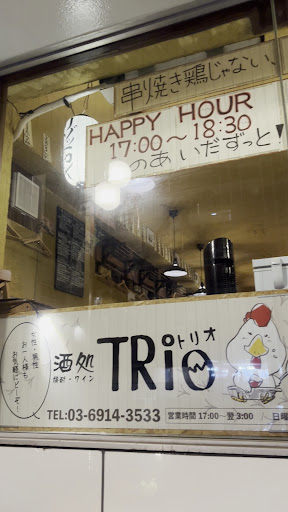 串焼き鶏じゃない、
HAPPY HOUR
17:00〜18:30
のあいだずっと!
女性・男性
お一人様も
お気軽にどーぞー
酒処
焼酎・ワイン
トリオ
TRio
TEL:03-6914-3533
営業時間 17:00〜翌3:00
日曜